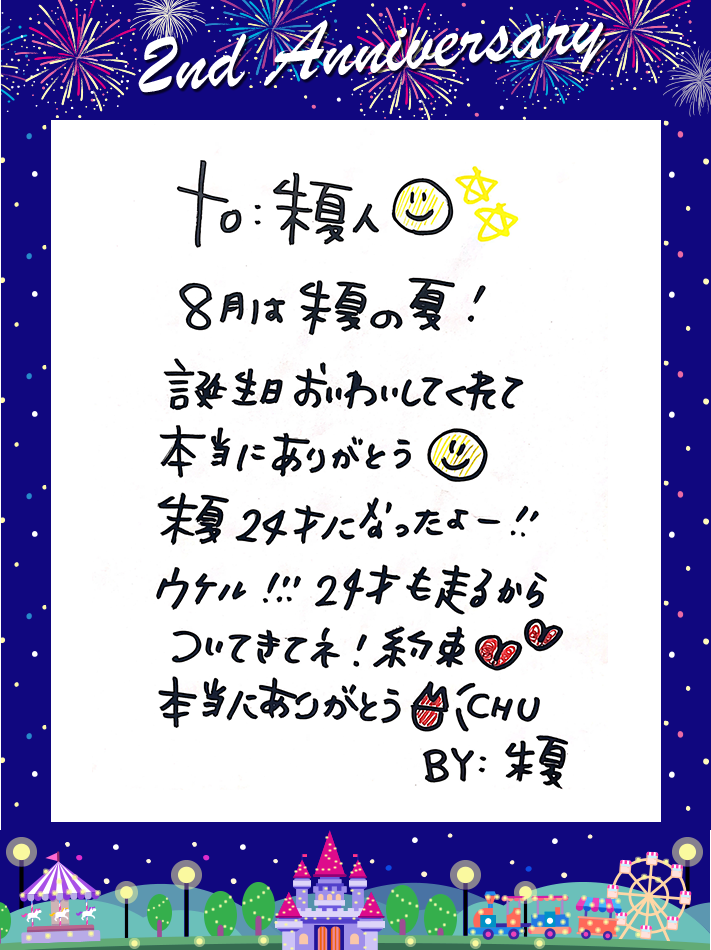 2nd Anniversary
To:朱夏人
8月は朱夏の夏！
誕生日おいわいしてくれて
本当にありがとう
朱夏24才になったよー!!
ウケル!!!24才も走るから
ついてきてネ！約束
本当にありがとう CHU
BY:朱夏